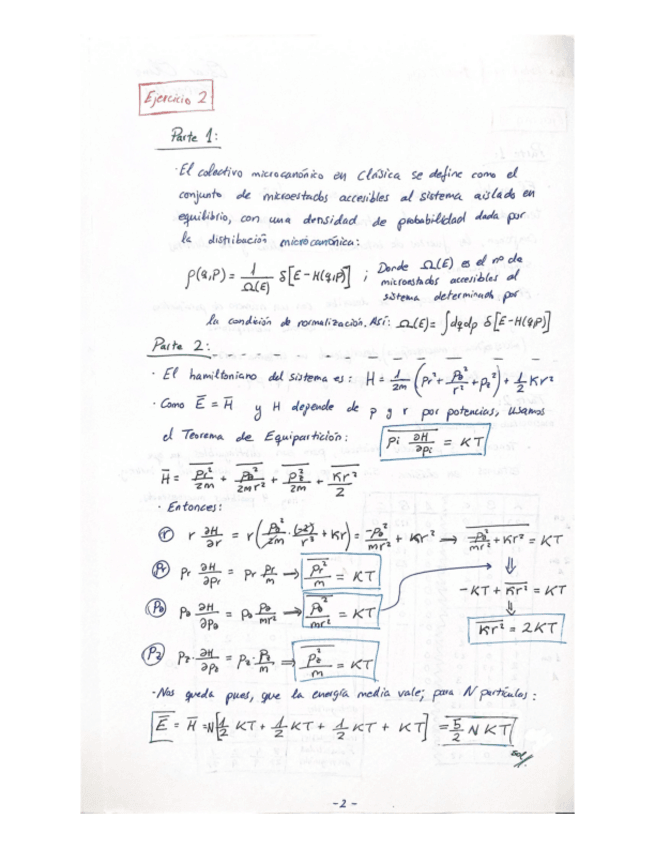 Ejercicio 2
Parte 1:
· El colectivo microcanónico en Clásica se define como el
conjunto de microestados accesibles al sistema aislado en
equilibrio, con una densidad de probabilidad dada por
la distribución microcanónica:
ρ(q,p) = 1/Ω(E) δ[E-H(q,p)] ; Donde Ω(E) es el nº de
microestados accesibles al
sistema determinado por
la condición de normalización. Así: Ω(E) = ∫dqdp δ[E-H(q,p)]
Parte 2:
· El hamiltoniano del sistema es: H = 1/2m (Pr² + Pθ²/r² + Pz²) + 1/2 Kr²
· Como E̅ = H̅ y H depende de p y r por potencias, usamos
el Teorema de Equipartición: Pi ∂H/∂Pi = KT
H̅ = Pr²/2m + Pθ²/2mr² + Pz²/2m + Kr²/2
· Entonces:
(r) r ∂H/∂r = r(Pθ²/2m · (-2)/r³ + Kr) = -Pθ²/mr² + Kr² → -Pθ²/mr² + Kr² = KT
(Pr) Pr ∂H/∂Pr = Pr Pr/m → Pr²/m = KT ⇓
-KT + Kr² = KT
(Pθ) Pθ ∂H/∂Pθ = Pθ Pθ/mr² → Pθ²/mr² = KT ⇓
Kr² = 2KT
(Pz) Pz · ∂H/∂Pz = Pz · Pz/m → Pz²/m = KT
· Nos queda pues, que la energía media vale; para N partículas:
E̅ = H̅ = N[1/2 KT + 1/2 KT + 1/2 KT + KT] = 5/2 NKT
sol/.
-2-